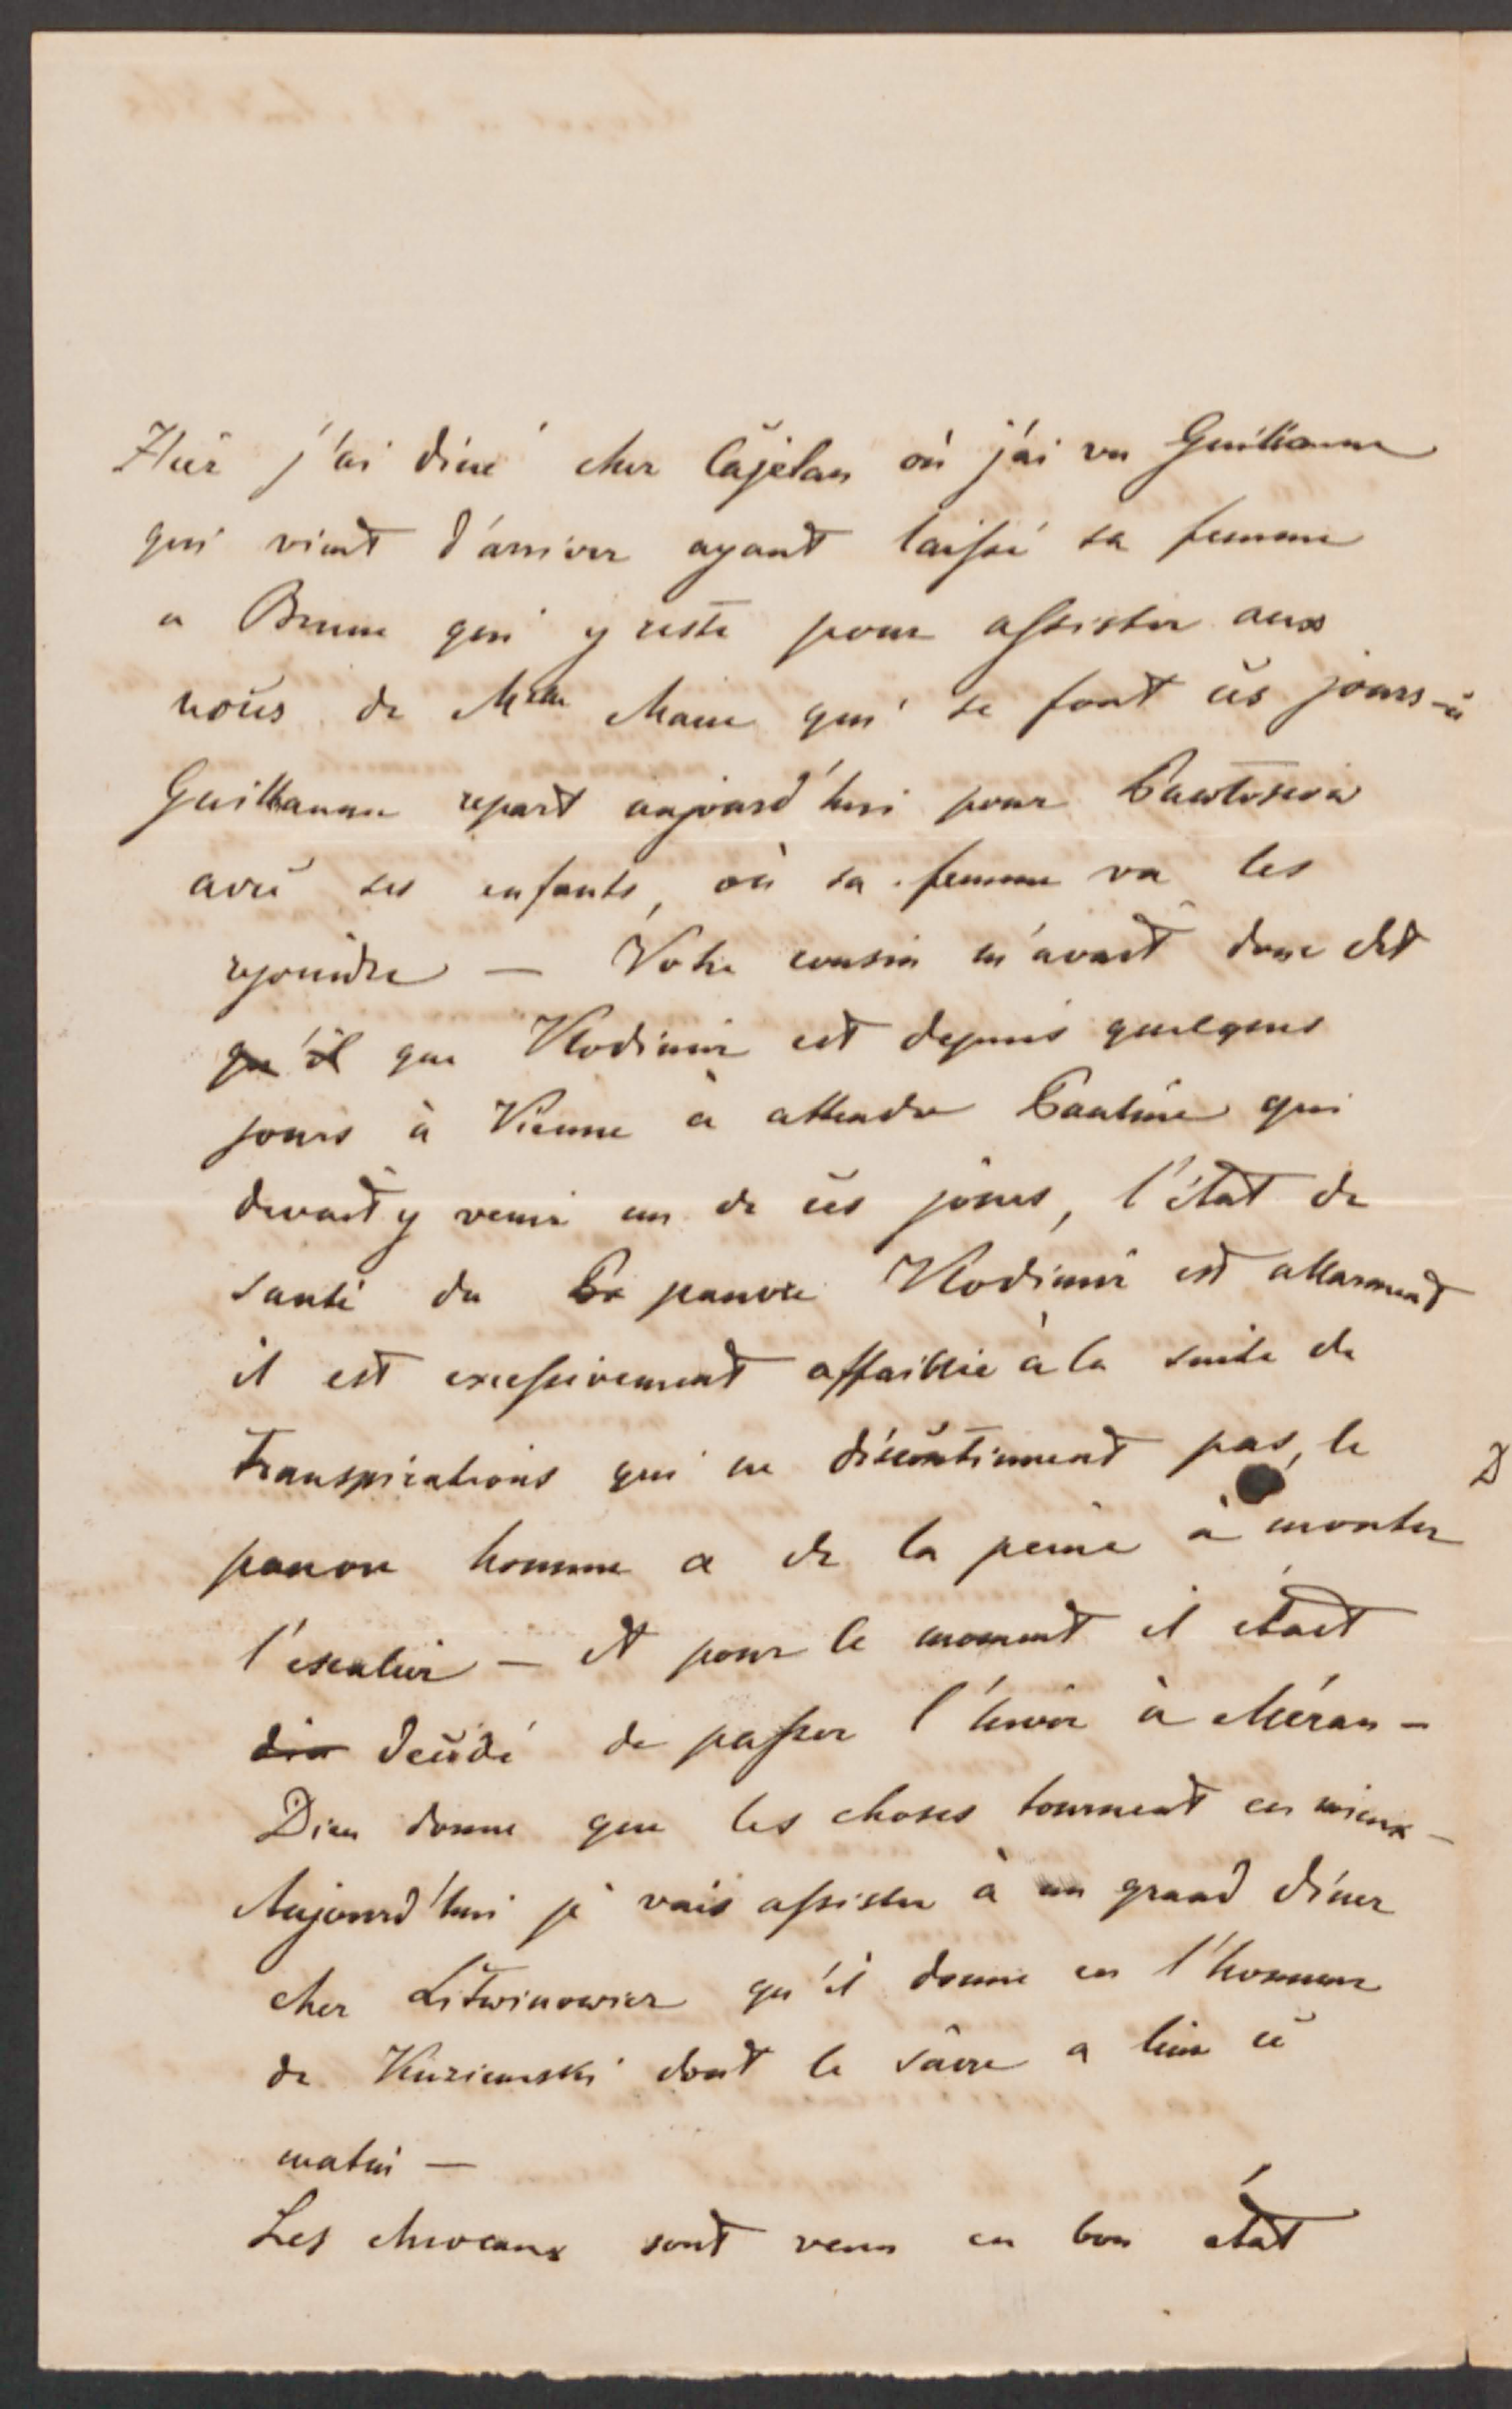 Hier j'ai diné cher Cajetan où j'ai vu Guillaume
qui vient d'arriver ayant laissé sa femme
a Brunn qui y reste pour assister aux
noces de Melle Marie qui se font ces jours-ci
Guillaume repart aujourd'hui pour
avec ses enfants, où sa femme va les
rejoindre — Votre cousin m'avait donc dit
qu'il que Vlodimir est depuis quelques
jours à Vienne à attendre Pauline qui
devait y venir un de ces jours, l'état de
santé du pauvre Vlodimir est allarmant
il est excessivement affaiblie à la suite de
transpirations qui ne discontinuent pas, le
pauvre homme a de la peine à monter
l'escalier — et pour le moment il était
décidé de passer l'hiver à Méran —
Dieu donne que les choses tournent en mieux —
Aujourd'hui je vais assister à un grand dîner
cher Litwinowicz qu'il donne en l'honneur
de Kuziemski dont le sacre a lieu ce
matin —
Les chevaux sont venu en bon état